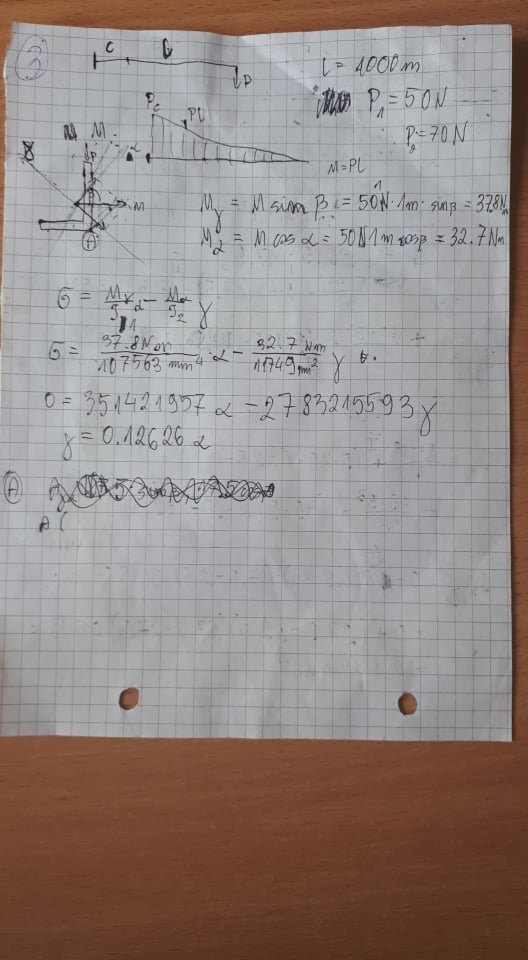 3
C L
P
l = 1000m
P₁ = 50N
P₂ = 70N
P꜀
PL
M = PL
M M
M
A
Mγ = M sin β = 50N · 1m · sinβ = 37.8Nm
M₂ = M cos α = 50N 1m cosβ = 32.7Nm
γ
37.8Nm / 107563 mm⁴ · α − 32.7Nm / 11749mm² γ
0 = 351421957 α − 2783215593 γ
γ = 0.12626 α
A
A (